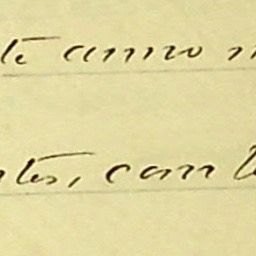 te anno
tes, com